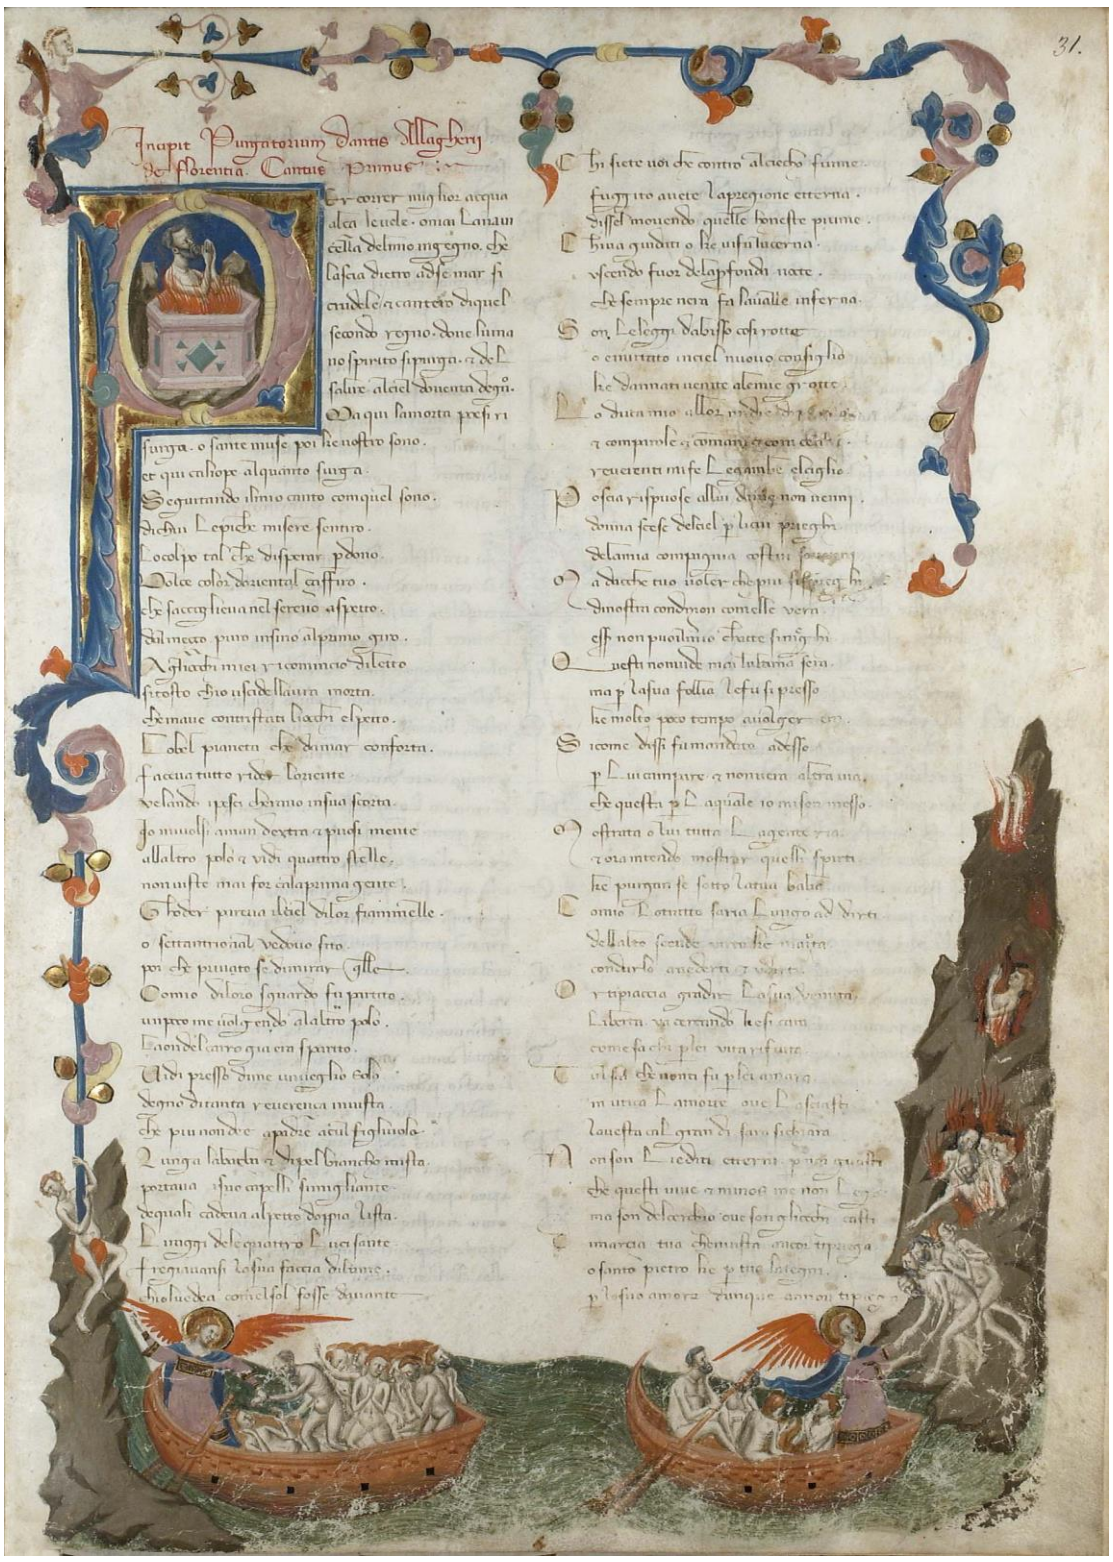 31.
Incipit Purgatorium Dantis Allagherij
de florentia. Cantus Primus
Er correr miglior acqua
alça le uele omai la naui
cella del mio ingegno. che
lascia dietro ad se mar si
crudele & cantero di quel
secondo regno. doue luma
no spirito si purga. & de L
salire al ciel douenta degno.
Ma qui la morta poesi ri
surga. o sante muse poi ke uostro sono.
et qui caliope alquanto surga.
Seguitando il mio canto con quel sono.
di chui Le piche misere sentiro
Lo colpo tal che disperar perdono.
Dolce color doriental çaffiro.
che saccoglieua nel sereno aspetto.
dal meço puro insino al primo giro.
Agliocchi miei ricomincio diletto
si tosto chio usci de llaura morta.
che mauea contristati liocchi el petto.
Lo bel pianeta che damar conforta.
faceua tutto rider loriente.
uelando ipesci cherano in sua scorta.
Io mi uolsi aman dextra & puosi mente
allaltro polo & uidi quattro stelle.
non uiste mai for cala prima gente.
Ghoder pareua il ciel di lor fiammelle.
o settantrional uedouo sito
poi che priuato se di mirar quelle.
Comio diloro sguardo fu partito.
un poco me uolgendo alaltro polo.
La onde il carro gia era sparito.
Uidi presso di me un ueglio solo
degno di tanta reuerença in uista.
che piu non dee a padre alcun figliuolo.
Lunga la barba & di pel biancho mista.
portaua isuo capelli simigliante.
de quali cadeua al petto doppia lista.
Li raggi dele quattro Luci sante
fregiauansi la sua faccia di lume.
chio luedea comel sol fosse dauante
Chi siete uoi che contro al ciecho fiume
fuggito auete la pregione etterna.
dissel mouendo quelle honeste piume.
Chiua guidati o ke ui fu lucerna.
uscendo fuor dela profonda nocte.
che sempre nera fa laualle inferna.
Son Le leggi dabisso cosi rotte
o e mutato in ciel nuouo consiglio
ke dannati uenite ale mie grotte.
Lo duca mio allor mi die di
& con parole & con mani & con cenni.
reuerenti mi fe Le gambe el ciglio.
Poscia rispuose allui da me non uenni.
donna scese del ciel per li cui prieghi
dela mia compagnia costui
Ma dacche tuo uoler che piu si
di nostra condition comelle uera
esser non puo il mio chatte si nieghi
Questi non uide mai lultima sera
ma per la sua follia le fu si presso
ke molto poco tempo a uolger era.
Sicome dissi fu mandato adesso
per Lui campare & non uera altra uia.
che questa per La quale io mi son messo.
Mostrata o lui tutta La gente ria.
& ora intendo mostrar quelli spirti
ke purgan se sotto latua balia.
Comio Lo tratto saria Lungo ad dirti
dellalto scende uirtu ke maiuta
conducerlo auederti &
Or ti piaccia gradir La sua uenuta.
Liberta ua cercando ke si cara
come sa chi per lei uita rifiuta
Tu il sai che non ti fu per lei amara
in utica La morte oue Lasciasti
la uesta cal gran di sara si chiara
Non son Liediti etterni per noi guasti
che questi uiue & minos me non Lega
ma son del cerchio oue son gliocchi casti
Di marcia tua che in uista ancor ti priega
o santo pietro ke per tua la tegni.
per lo suo amore dunque a noi ti piega